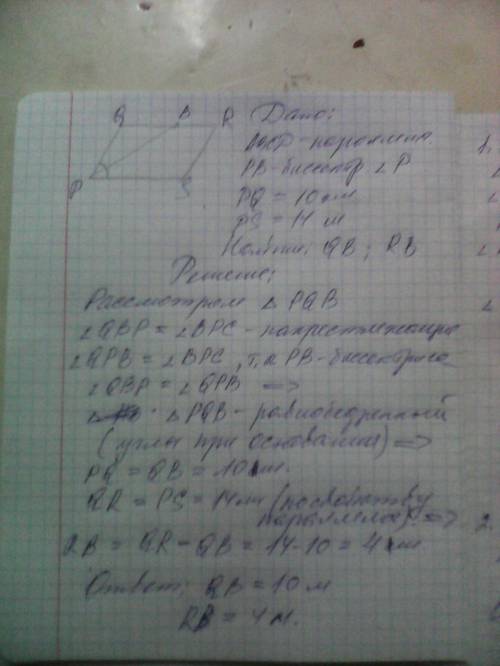 Q B R
Дано:
паралл.
P S
PB-биссектр. ∠P
PQ = 10 м
PS = 14 м
Найти: QB; RB
Решение:
Рассмотрим △ PQB
∠QBP = ∠BPC - накрестлежащие
∠QPB = ∠BPC, т.к PB-биссектриса
∠QBP = ∠QPB =>
△PQB-равнобедренный
(углы при основании) =>
PQ = QB = 10 м.
QR = PS = 14м (по свойству
=>
RB = QR - QB = 14-10 = 4 м
Ответ: QB = 10 м
RB = 4 м.
1.
2.